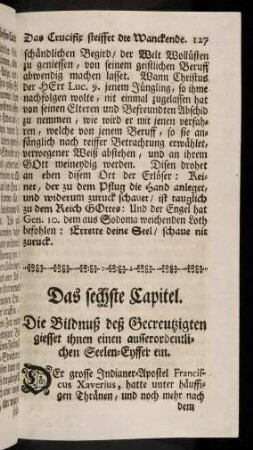 Das Crucifix steiffet die Wanckende. 127
schändlichen Begird/ der Welt Wollüsten
zu geniessen/ von seinem geistlichen Beruff
abwendig machen lasset. Wann Christus
der HErr Luc. 9. jenem Jüngling/ so ihme
nachfolgen wolte/ nit einmal zugelassen hat
von seinen Elteren und Befreundten Abschid
zu nemmen/ wie wird er mit jenen verfah-
ren/ welche von jenem Beruff/ so sie an-
fänglich nach reiffer Betrachtung erwählet/
verwegener Weiß abstehen/ und an ihrem
GOtt meineydig werden. Disen drohet
an eben disem Ort der Erlöser: Kei-
ner/ der zu dem Pflug die Hand anleget/
und widerum zuruck schauet/ ist tauglich
zu dem Reich GOttes: Und der Engel hat
Gen. 10. dem aus Sodoma weichenden Loth
befohlen: Errette deine Seel/ schaue nit
zuruck.
Das sechste Capitel.
Die Bildnuß deß Gecreutzigten
giesset ihnen einen ausserordentli-
chen Seelen-Eyffer ein.
DEr grosse Indianer-Apostel Francis-
cus Xaverius, hatte unter häuffi-
gen Thränen, und noch mehr nach
dem